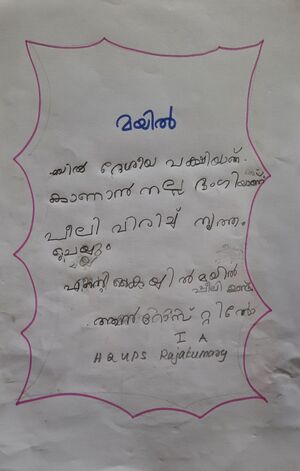 മയിൽ
മയിൽ ദേശീയ പക്ഷിയാണ്.
കാണാൻ നല്ല ഭംഗിയാണ്
പീലി വിരിച്ച് നൃത്തം
ചെയ്യും
എന്റെ കൈയ്യിൽ മയിൽ
പീലി ഉണ്ട്
ആൺ റോസ്
I A
HQUPS Rajakumary